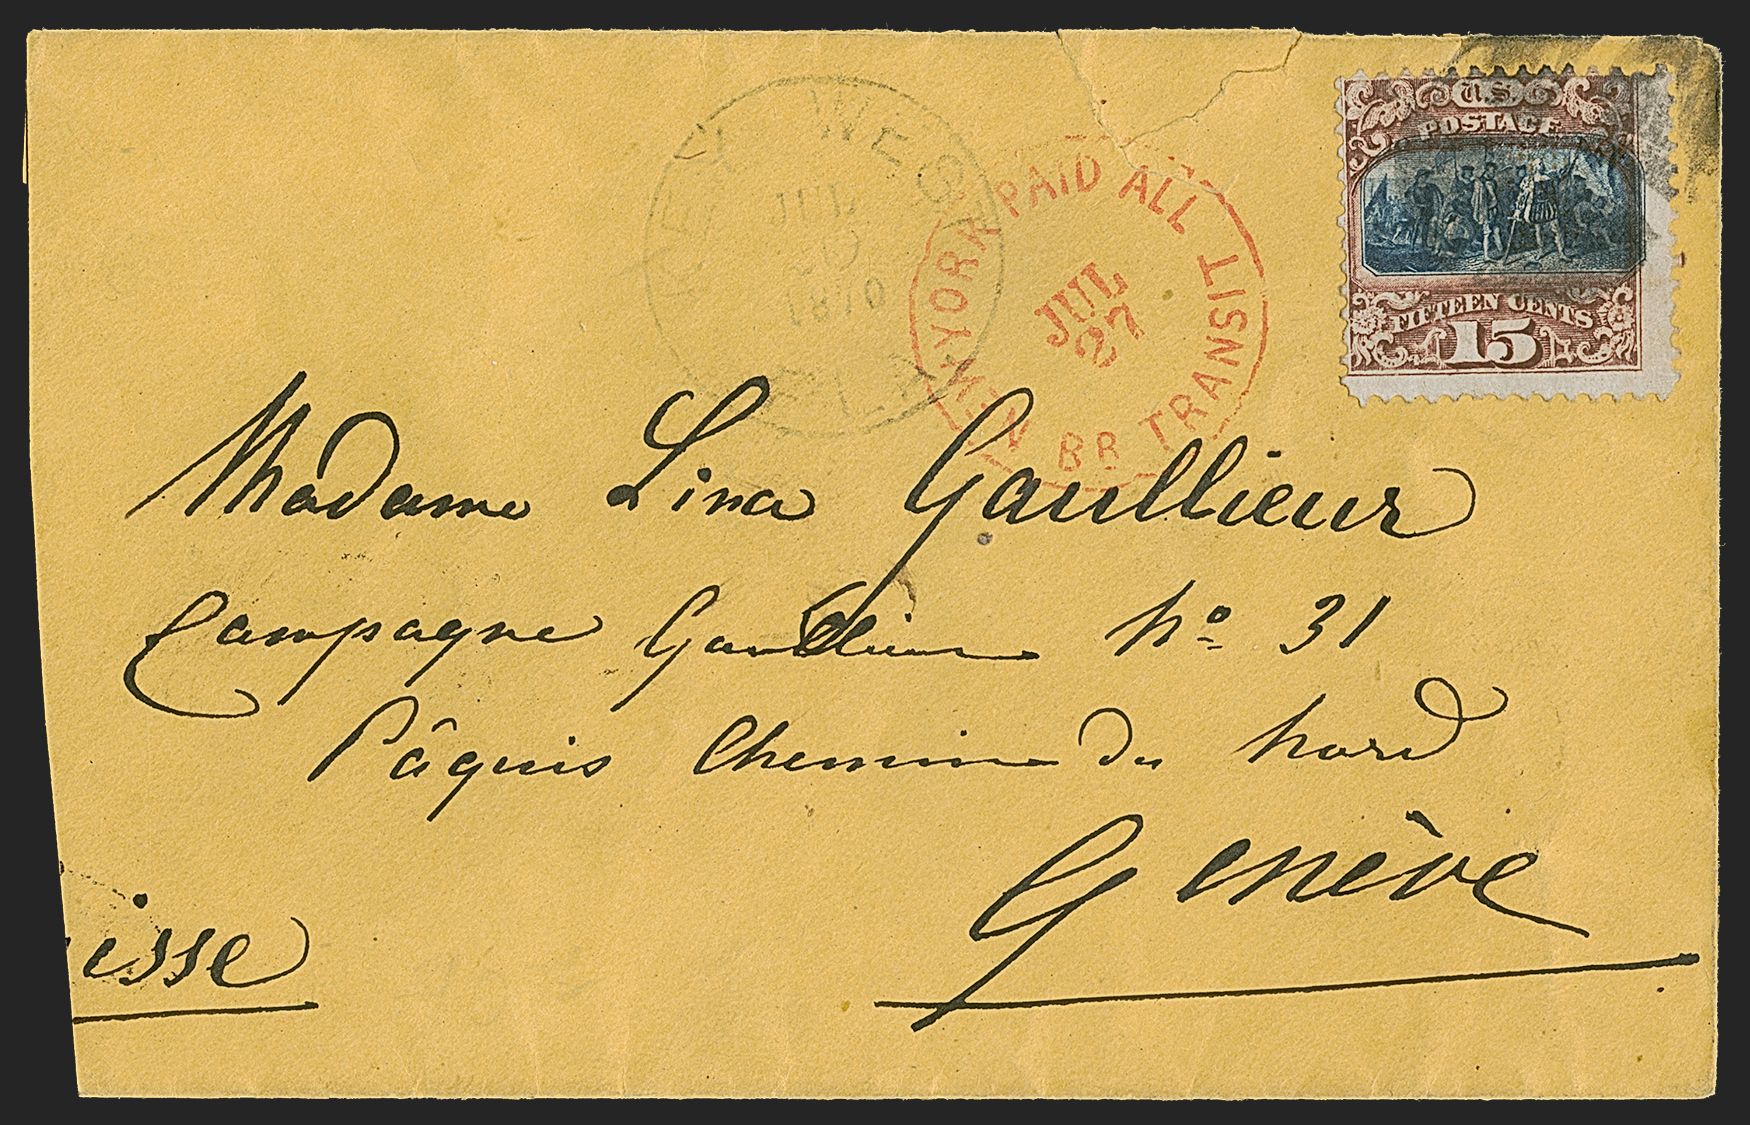 U.S.
POSTAGE
FIFTEEN CENTS
15
JUL
1870
NEW YORK PAID ALL BR TRANSIT
JUL
27
Madame Lina Gaullieur
Campagne Gaullieur No 31
Pâquis Chemin du Nord
Genève
isse